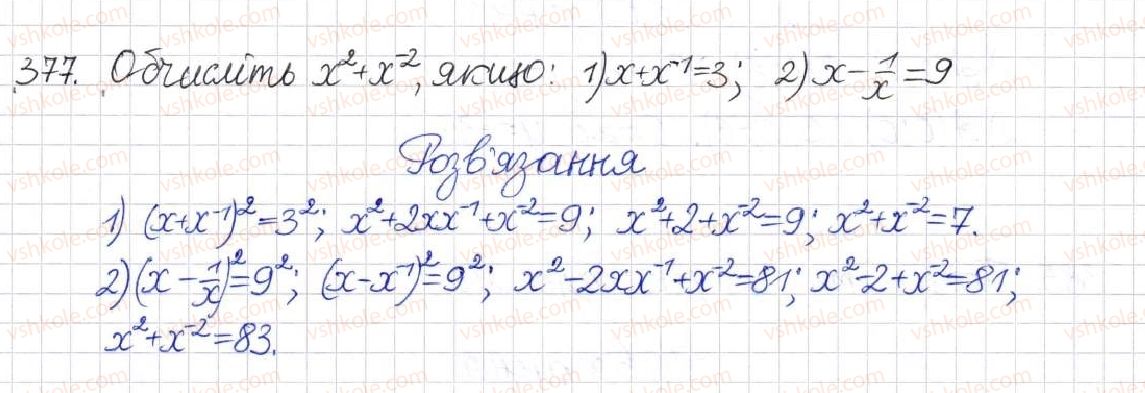 377. Обчисліть x²+x⁻², якщо: 1) x+x⁻¹=3; 2) x-1/x=9
Розв'язання
1) (x+x⁻¹)²=3²; x²+2xx⁻¹+x⁻²=9; x²+2+x⁻²=9; x²+x⁻²=7.
2) (x-1/x)²=9²; (x-x⁻¹)²=9²; x²-2xx⁻¹+x⁻²=81; x²-2+x⁻²=81;
x²+x⁻²=83.